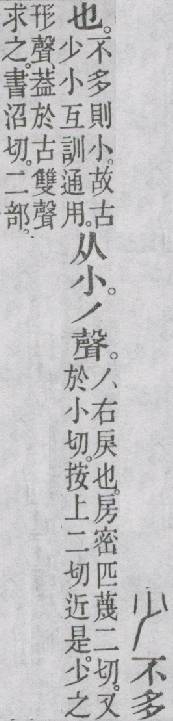 少不多
也。
不多則小。故古
少小互訓通用。
从小。丿聲。
丿、右戾也。房密匹蔑二切。又
於小切。按上二切近是。少之
形聲葢於古雙聲
求之。書沼切。二部。